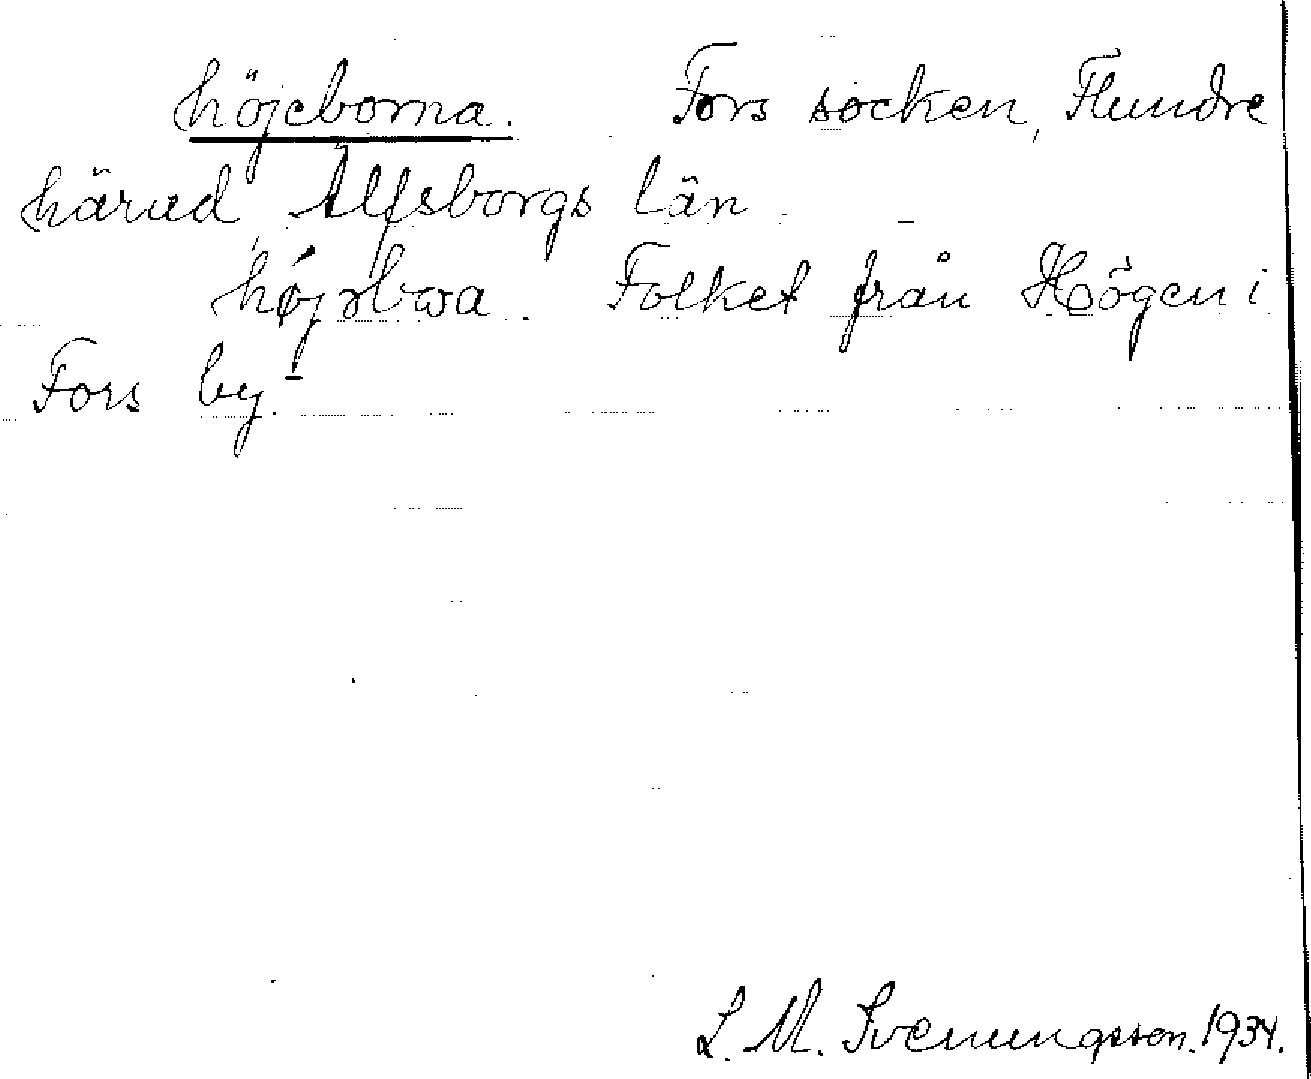 höjeborna. Fors socken, Flundre
härad Älfsborgs län.
Folket från Högen i
Fors by.
L. M. Svenungsson. 1934.